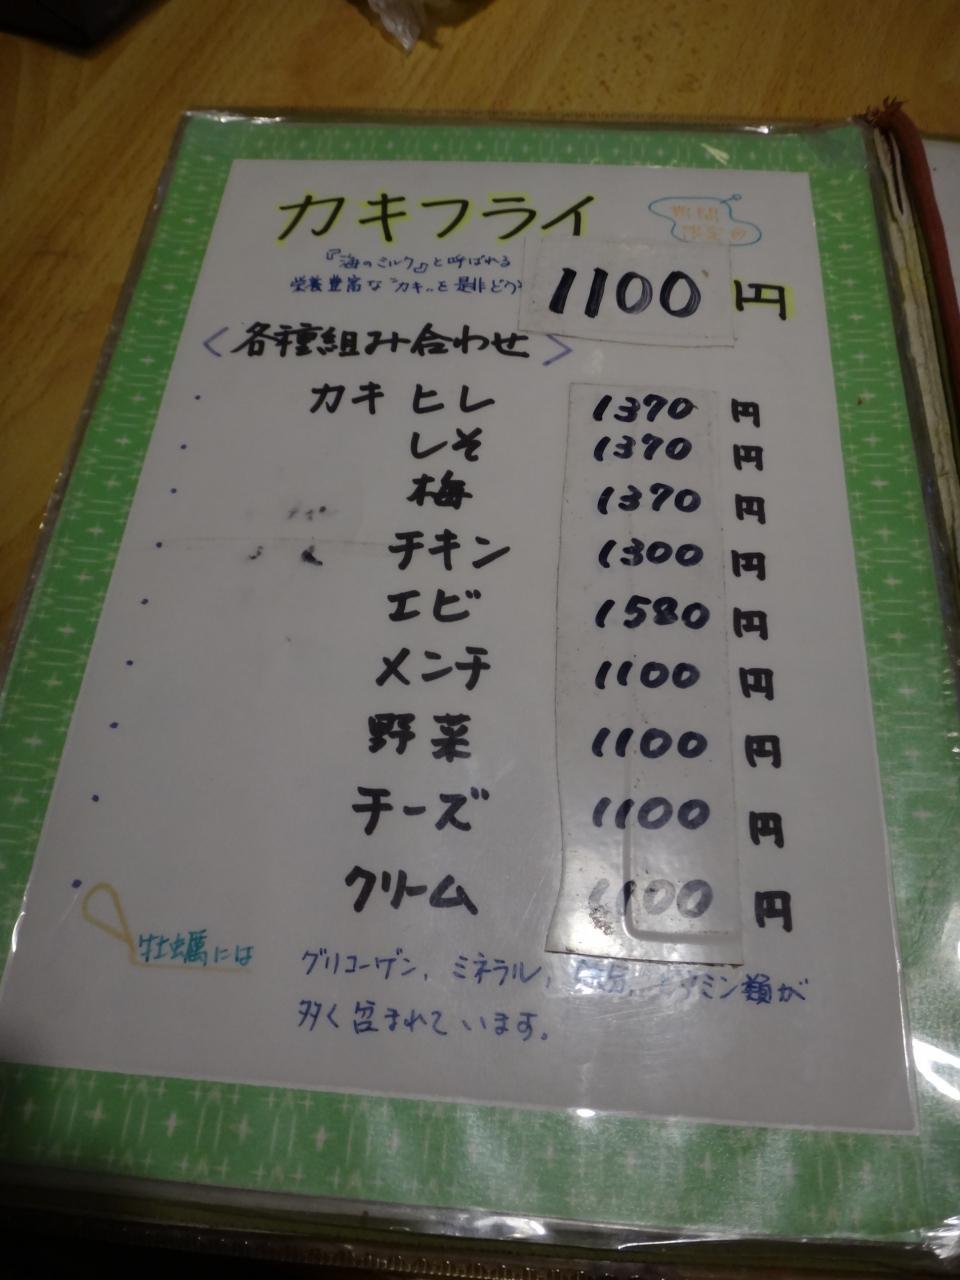 カキフライ
期間
限定
『海のミルク』と呼ばれる
栄養豊富な"カキ"を是非どうぞ
1100円
<各種組み合わせ>
・カキ ヒレ 1370円
・しそ 1370円
・梅 1370円
・チキン 1300円
・エビ 1580円
・メンチ 1100円
・野菜 1100円
・チーズ 1100円
・クリーム 1100円
牡蠣には
グリコーゲン、ミネラル、 ビタミン類が
多く含まれています。